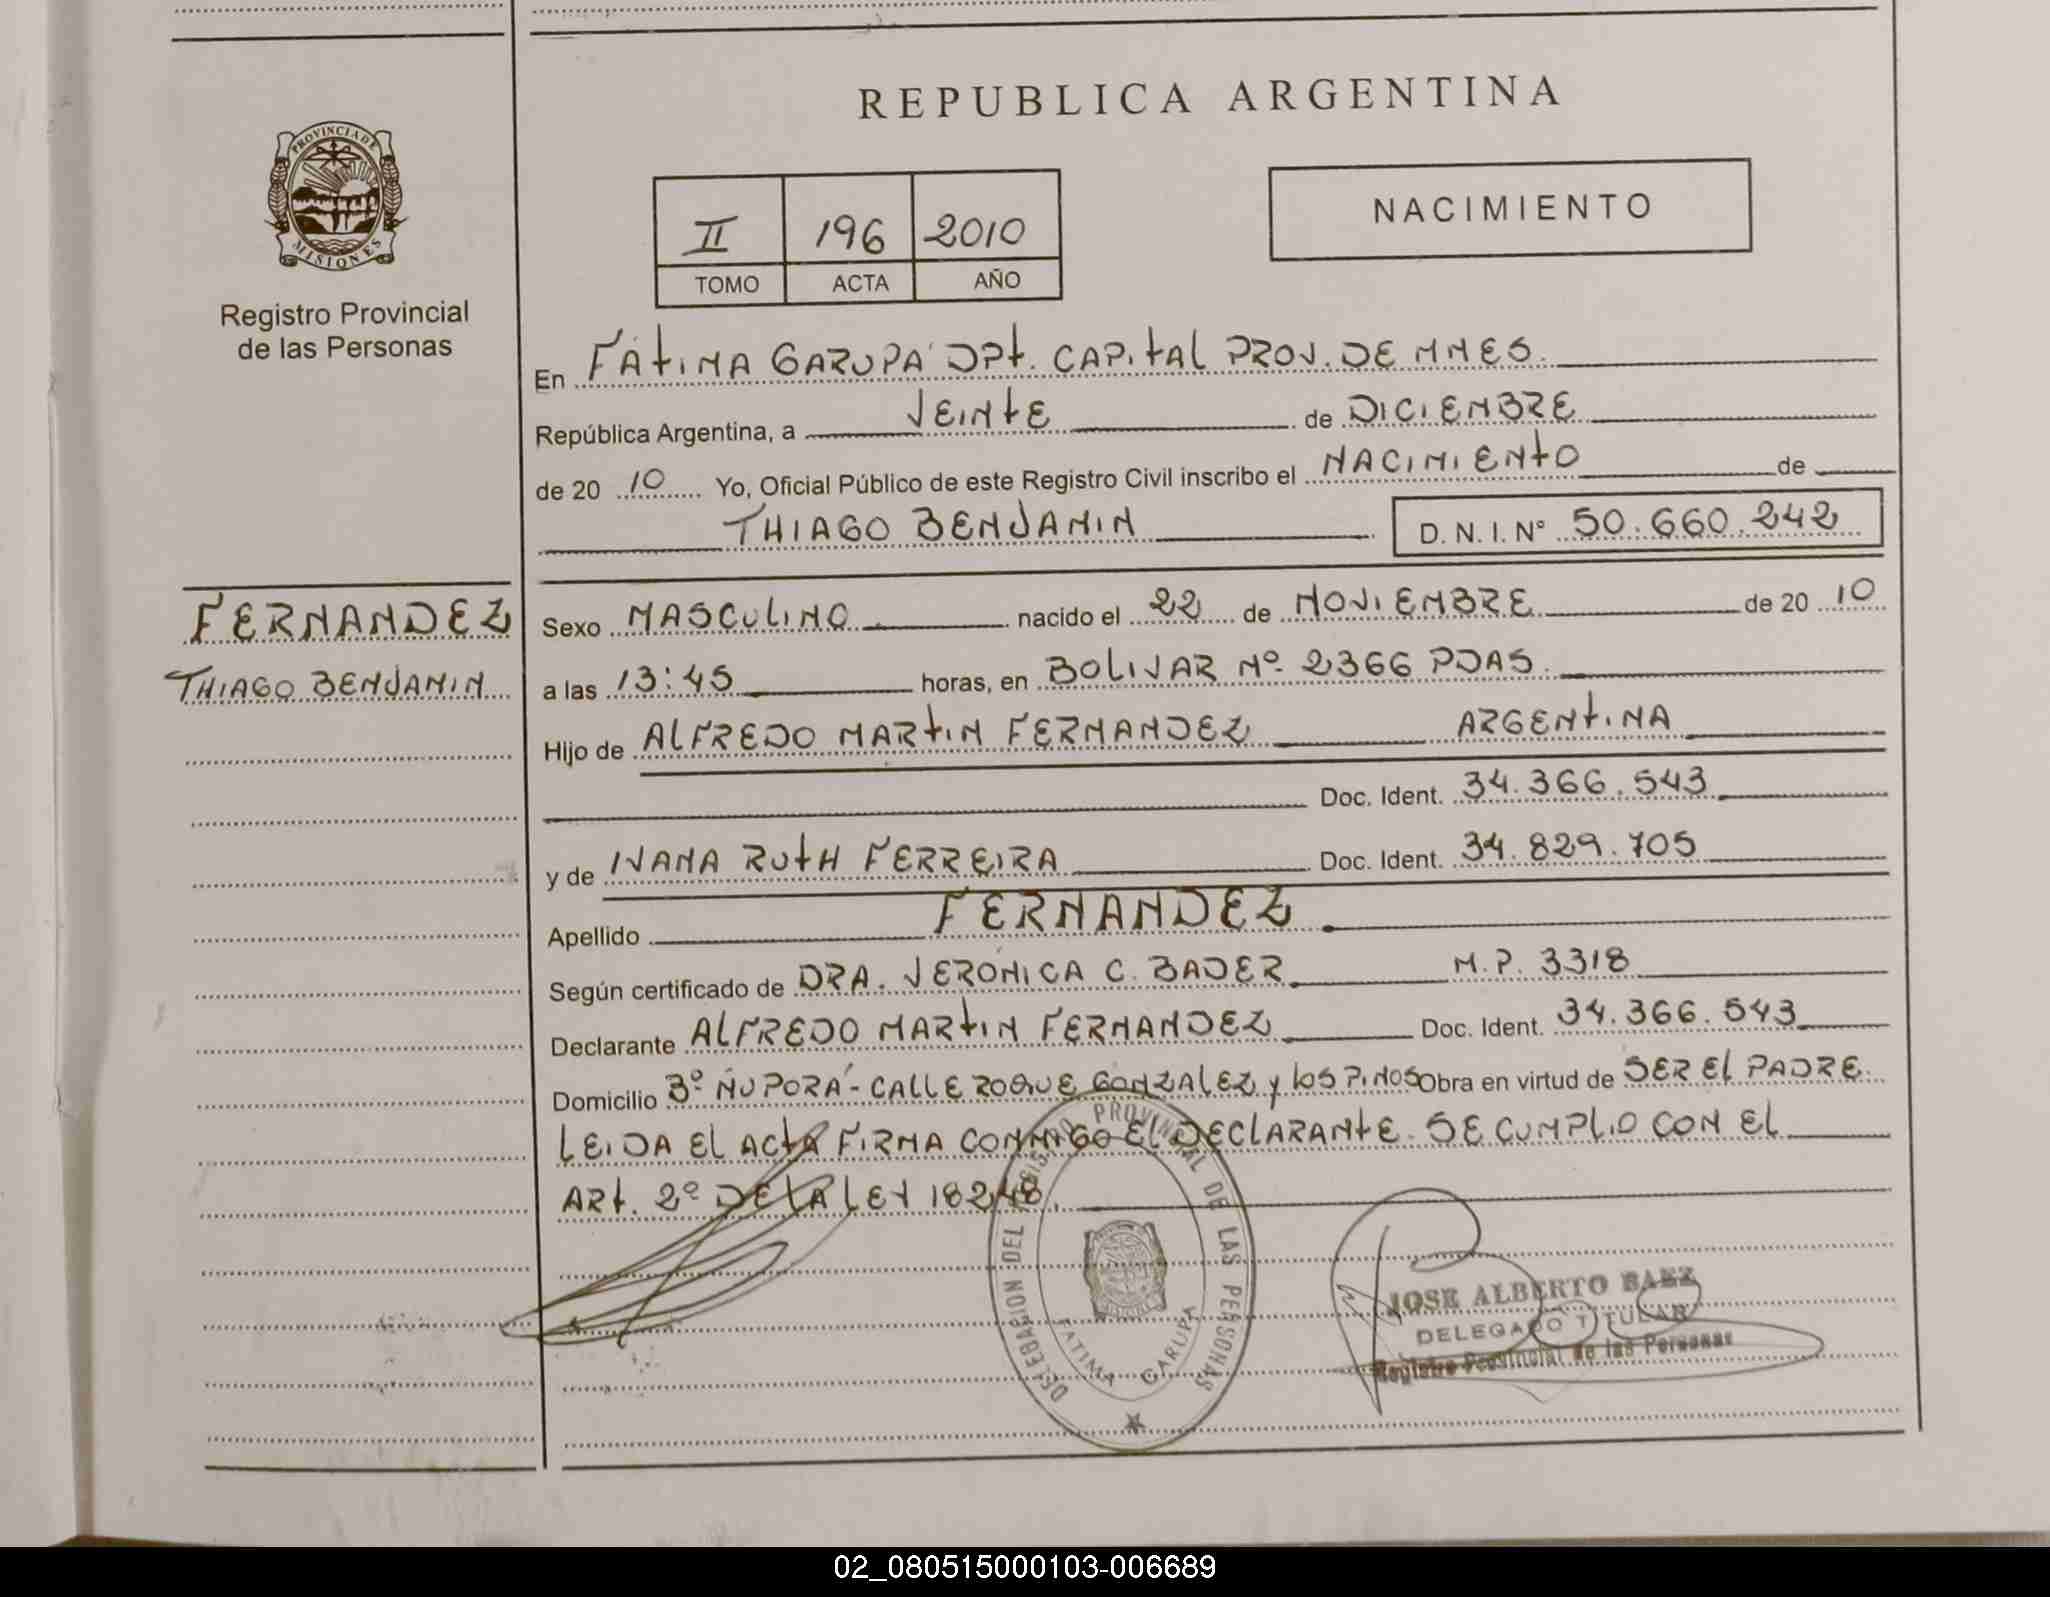 REPUBLICA ARGENTINA
PROVINCIA DE
MISIONES
Registro Provincial
de las Personas
II 196 2010
TOMO ACTA AÑO
NACIMIENTO
En FÁTIMA GARUPA DPt. CAPITAL PROV. DE MNES.
República Argentina, a VEINTE de DICIEMBRE
de 20 10 Yo, Oficial Público de este Registro Civil inscribo el NACIMIENTO de
THIAGO BENJAMIN D.N.I.N° 50.660.242
FERNANDEZ
THIAGO BENJAMIN
Sexo MASCULINO nacido el 22 de NOVIEMBRE de 20 10
a las 13:45 horas, en BOLIVAR Nº 2366 PDAS.
Hijo de ALFREDO MARTIN FERNANDEZ ARGENTINA
Doc. Ident. 34.366.543
y de IVANA RUTH FERREIRA Doc. Ident. 34.829.705
Apellido FERNANDEZ
Según certificado de DRA. VERÓNICA C. BADER M.P. 3318
Declarante ALFREDO MARTIN FERNANDEZ Doc. Ident. 34.366.543
Domicilio Bº ÑU PORÁ - CALLE ROQUE GONZALEZ y LOS PINOS Obra en virtud de SER EL PADRE.
LEIDA EL ACTA FIRMA CONMIGO EL DECLARANTE. SE CUMPLIO CON EL
ART. 2º DE LA LEY 18248.
DELEGACION DEL REGISTRO PROVINCIAL DE LAS PERSONAS
FATIMA GARUPA
JOSE ALBERTO BAEZ
DELEGADO TITULAR
Registro Provincial de las Personas
02_080515000103-006689